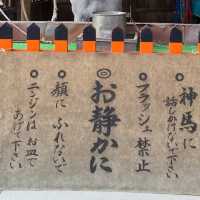 ○神馬に
話しかけないで下さい
○フラッシュ禁止
◎お静かに
○顔にふれないで
○ニンジンはお皿で
あげて下さい